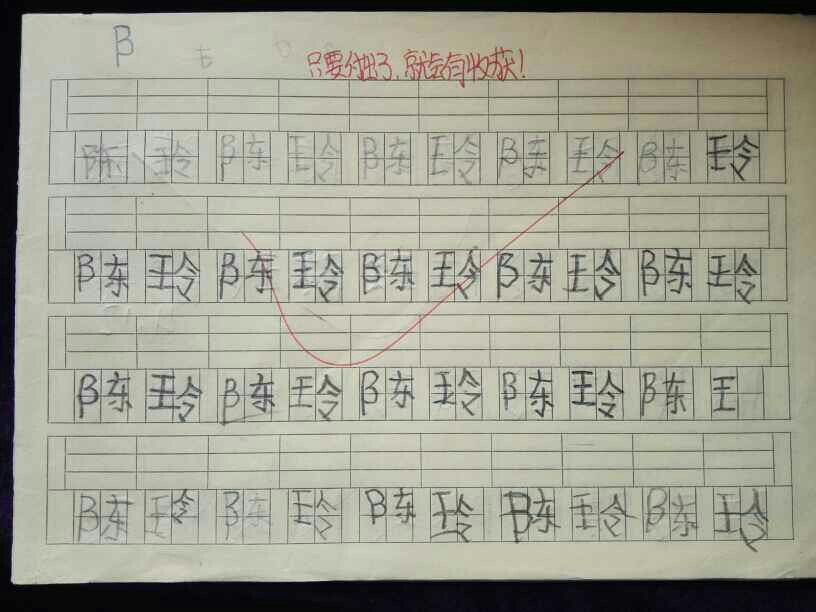 β
只要付出了,就会有收获!
陈 玲 陈 玲 陈 玲 陈 玲 陈 玲
陈 玲 陈 玲 陈 玲 陈 玲 陈 玲
陈 玲 陈 玲 陈 玲 陈 玲 陈 王
陈 玲 陈 玲 陈 玲 陈 玲 陈 玲